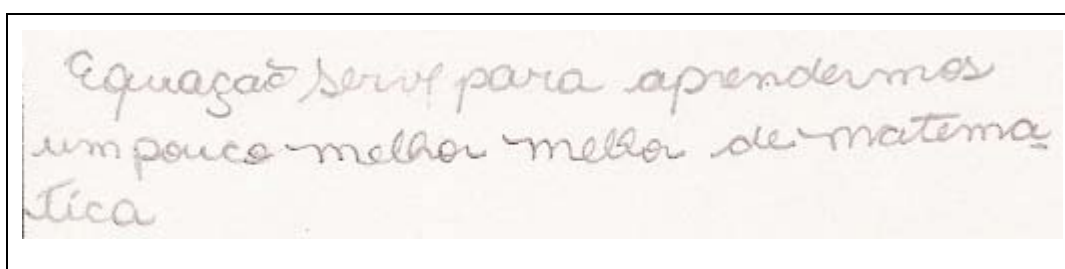 Equação serve para aprendermos
um pouco melhor melhor de matema
tica